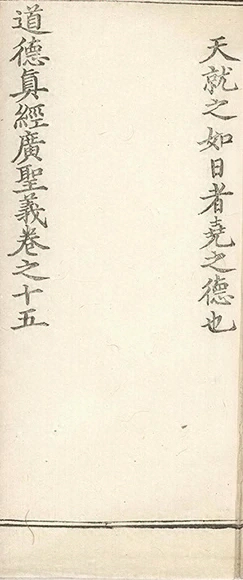 天就之如日者堯之德也
道德眞經廣聖義卷之十五